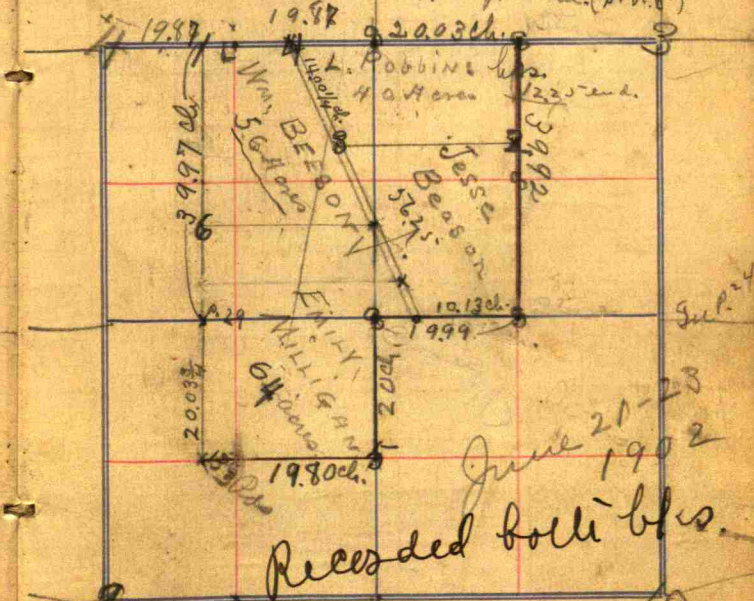 19.87
19.87
20.03 ch.
L. Robbins hrs.
40 Acres
12.25 end.
14.00¼ ch.
Wm. BEESON
56 Acres
Jesse
Beason
39.97 ch.
39.92
56.25
6
10.13 ch.
P. 29
19.99
EMILY
MILLIGAN
64
acres
20.03¾
20 ch.
19.80 ch.
June 21-23
1902
Recorded both bks.